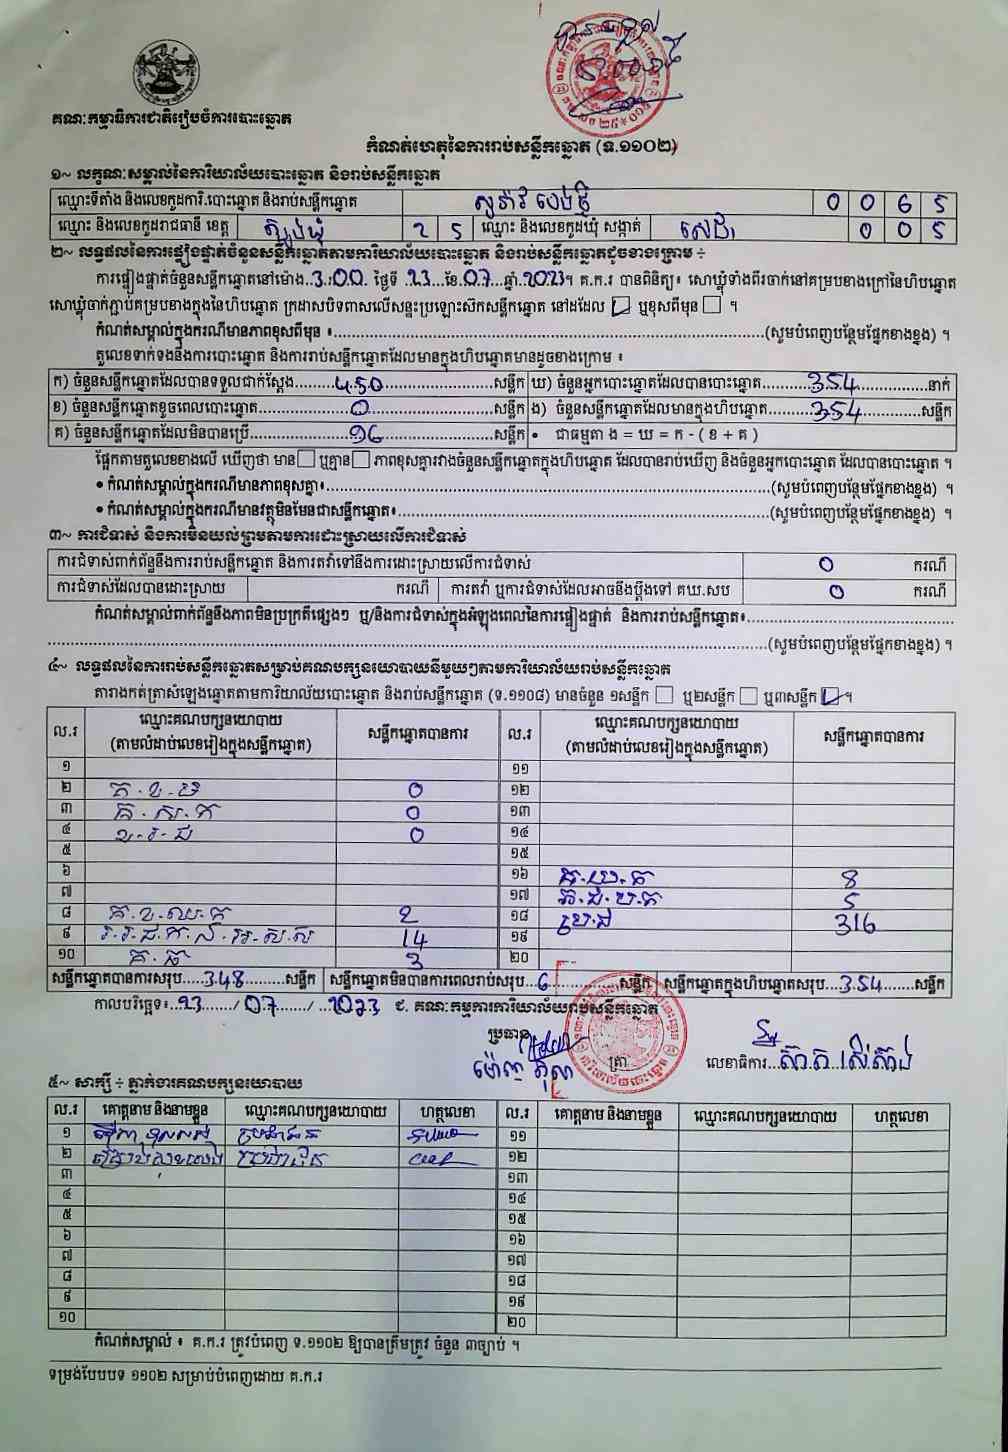 គណៈកម្មាធិការជាតិរៀបចំការបោះឆ្នោត
កំណត់ហេតុនៃការរាប់សន្លឹកឆ្នោត (ទ.១១០២)
១~ លក្ខណៈសម្គាល់នៃការិយាល័យបោះឆ្នោត និងរាប់សន្លឹកឆ្នោត
ឈ្មោះទីតាំង និងលេខកូដការិ.បោះឆ្នោត និងរាប់សន្លឹកឆ្នោត 0 0 6 5
ឈ្មោះ និងលេខកូដរាជធានី ខេត្ត ត្បូងឃ្មុំ 2 5 ឈ្មោះ និងលេខកូដឃុំ សង្កាត់ សេដា 0 0 5
២~ លទ្ធផលនៃការផ្ទៀងផ្ទាត់ចំនួនសន្លឹកឆ្នោតតាមការិយាល័យបោះឆ្នោត និងរាប់សន្លឹកឆ្នោតដូចខាងក្រោម ៖
ការផ្ទៀងផ្ទាត់ចំនួនសន្លឹកឆ្នោតនៅម៉ោង.3:00. ថ្ងៃទី .23...ខែ.07...ឆ្នាំ.2023។ គ.ក.រ បានពិនិត្យ៖ សោឃ្លុំទាំងពីរចាក់នៅគម្របខាងក្រៅនៃហិបឆ្នោត
សោឃ្លុំចាក់ភ្ជាប់គម្របខាងក្នុងនៃហិបឆ្នោត ក្រដាសបិទពាសលើសន្ទះប្រឡោះស៊កសន្លឹកឆ្នោត នៅដដែល ☑ ឬខុសពីមុន ☐ ។
កំណត់សម្គាល់ក្នុងករណីមានភាពខុសពីមុន ៖..........(សូមបំពេញបន្ថែមផ្នែកខាងខ្នង) ។
តួលេខទាក់ទងនឹងការបោះឆ្នោត និងការរាប់សន្លឹកឆ្នោតដែលមានក្នុងហិបឆ្នោតមានដូចខាងក្រោម ៖
ក) ចំនួនសន្លឹកឆ្នោតដែលបានទទួលជាក់ស្តែង.......450.......សន្លឹក ឃ) ចំនួនអ្នកបោះឆ្នោតដែលបានបោះឆ្នោត.......354.......នាក់
ខ) ចំនួនសន្លឹកឆ្នោតខូចពេលបោះឆ្នោត.......0.......សន្លឹក ង) ចំនួនសន្លឹកឆ្នោតដែលមានក្នុងហិបឆ្នោត.......354.......សន្លឹក
គ) ចំនួនសន្លឹកឆ្នោតដែលមិនបានប្រើ.......96.......សន្លឹក • ជាធម្មតា ង = ឃ = ក - ( ខ + គ )
ផ្អែកតាមតួលេខខាងលើ ឃើញថា មាន☐ ឬគ្មាន☐ ភាពខុសគ្នារវាងចំនួនសន្លឹកឆ្នោតក្នុងហិបឆ្នោត ដែលបានរាប់ឃើញ និងចំនួនអ្នកបោះឆ្នោត ដែលបានបោះឆ្នោត ។
• កំណត់សម្គាល់ក្នុងករណីមានភាពខុសគ្នា៖..........(សូមបំពេញបន្ថែមផ្នែកខាងខ្នង) ។
• កំណត់សម្គាល់ក្នុងករណីមានវត្ថុមិនមែនជាសន្លឹកឆ្នោត៖..........(សូមបំពេញបន្ថែមផ្នែកខាងខ្នង) ។
៣~ ការជំទាស់ និងការមិនយល់ព្រមតាមការដោះស្រាយលើការជំទាស់
ការជំទាស់ពាក់ព័ន្ធនឹងការរាប់សន្លឹកឆ្នោត និងការតវ៉ាទៅនឹងការដោះស្រាយលើការជំទាស់ 0 ករណី
ការជំទាស់ដែលបានដោះស្រាយ ករណី ការតវ៉ា ឬការជំទាស់ដែលអាចនឹងប្តឹងទៅ គឃ.សប 0 ករណី
កំណត់សម្គាល់ពាក់ព័ន្ធនឹងភាពមិនប្រក្រតីផ្សេងៗ ឬ/និងការជំទាស់ក្នុងអំឡុងពេលនៃការផ្ទៀងផ្ទាត់ និងការរាប់សន្លឹកឆ្នោត៖..........
..........(សូមបំពេញបន្ថែមផ្នែកខាងខ្នង) ។
៤~ លទ្ធផលនៃការរាប់សន្លឹកឆ្នោតសម្រាប់គណបក្សនយោបាយនីមួយៗតាមការិយាល័យរាប់សន្លឹកឆ្នោត
តារាងកត់ត្រាសំឡេងឆ្នោតតាមការិយាល័យបោះឆ្នោត និងរាប់សន្លឹកឆ្នោត (ទ.១១០៨) មានចំនួន ១សន្លឹក ☐ ឬ២សន្លឹក ☐ ឬ៣សន្លឹក ☑ ។
ល.រ ឈ្មោះគណបក្សនយោបាយ (តាមលំដាប់លេខរៀងក្នុងសន្លឹកឆ្នោត) សន្លឹកឆ្នោតបានការ ល.រ ឈ្មោះគណបក្សនយោបាយ (តាមលំដាប់លេខរៀងក្នុងសន្លឹកឆ្នោត) សន្លឹកឆ្នោតបានការ
១ ១១
២ 0 ១២
៣ 0 ១៣
៤ 0 ១៤
៥ ១៥
៦ ១៦ គ.យ.ក 8
៧ ១៧ 5
៨ 2 ១៨ 316
៩ 14 ១៩
១០ 3 ២០
សន្លឹកឆ្នោតបានការសរុប...348.......សន្លឹក សន្លឹកឆ្នោតមិនបានការពេលរាប់សរុប..6.......សន្លឹក សន្លឹកឆ្នោតក្នុងហិបឆ្នោតសរុប..354.......សន្លឹក
កាលបរិច្ឆេទ៖..23....../.07....../...2023 ជ. គណៈកម្មការការិយាល័យរាប់សន្លឹកឆ្នោត
ប្រធាន
ត្រា
លេខាធិការ
៥~ សាក្សី ÷ ភ្នាក់ងារគណបក្សនយោបាយ
ល.រ គោត្តនាម និងនាមខ្លួន ឈ្មោះគណបក្សនយោបាយ ហត្ថលេខា ល.រ គោត្តនាម និងនាមខ្លួន ឈ្មោះគណបក្សនយោបាយ ហត្ថលេខា
១ ១១
២ ១២
៣ ១៣
៤ ១៤
៥ ១៥
៦ ១៦
៧ ១៧
៨ ១៨
៩ ១៩
១០ ២០
កំណត់សម្គាល់ ៖ គ.ក.រ ត្រូវបំពេញ ទ.១១០២ ឱ្យបានត្រឹមត្រូវ ចំនួន ៣ច្បាប់ ។
ទម្រង់បែបបទ ១១០២ សម្រាប់បំពេញដោយ គ.ក.រ